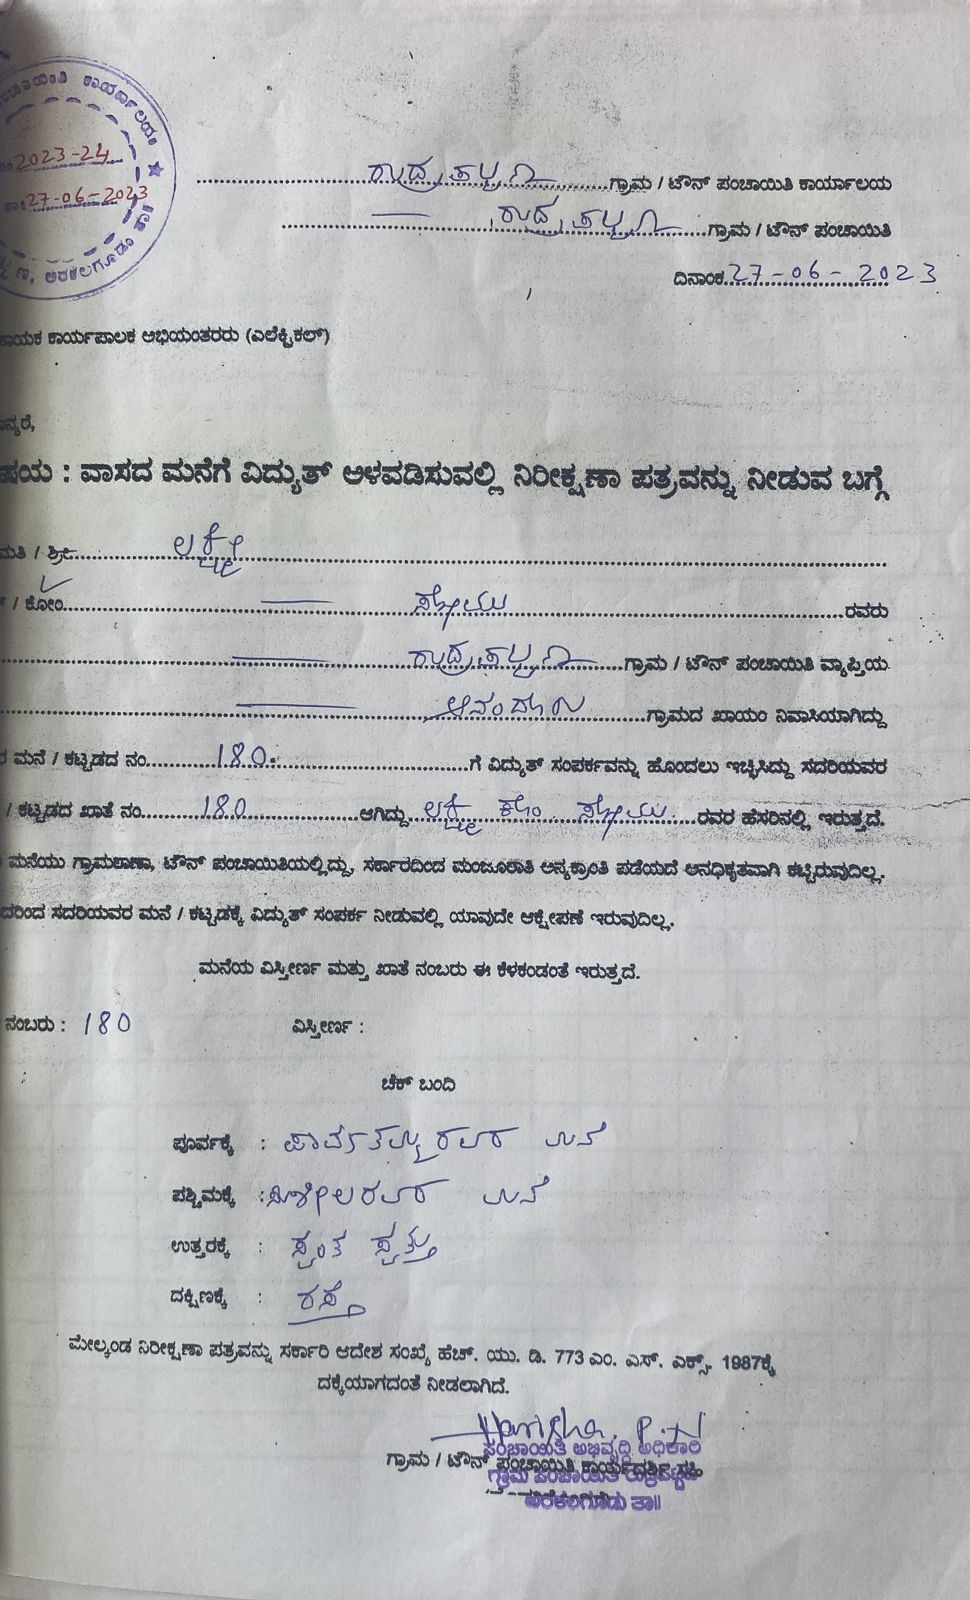 ಕಾರ್ಯಾಲಯ
2023-24
27-06-2023
ಅರಕಲಗೂಡು
ರುದ್ರಪಟ್ಟಣ ಗ್ರಾಮ / ಟೌನ್ ಪಂಚಾಯಿತಿ ಕಾರ್ಯಾಲಯ
ರುದ್ರಪಟ್ಟಣ ಗ್ರಾಮ / ಟೌನ್ ಪಂಚಾಯಿತಿ
ದಿನಾಂಕ 27-06-2023
ಕಾರ್ಯಪಾಲಕ ಅಭಿಯಂತರರು (ಎಲೆಕ್ಟ್ರಿಕಲ್)
: ವಾಸದ ಮನೆಗೆ ವಿದ್ಯುತ್ ಅಳವಡಿಸುವಲ್ಲಿ ನಿರೀಕ್ಷಣಾ ಪತ್ರವನ್ನು ನೀಡುವ ಬಗ್ಗೆ
/ ಶ್ರೀ ಲಕ್ಷ್ಮೀ
/ ಕೋಂ ಸೋಮು ರವರು
ರುದ್ರಪಟ್ಟಣ ಗ್ರಾಮ / ಟೌನ್ ಪಂಚಾಯಿತಿ ವ್ಯಾಪ್ತಿಯ
ಗ್ರಾಮದ ಖಾಯಂ ನಿವಾಸಿಯಾಗಿದ್ದು
ಮನೆ / ಕಟ್ಟಡದ ನಂ. 180 ಗೆ ವಿದ್ಯುತ್ ಸಂಪರ್ಕವನ್ನು ಹೊಂದಲು ಇಚ್ಛಿಸಿದ್ದು ಸದರಿಯವರ
/ ಕಟ್ಟಡದ ಖಾತೆ ನಂ. 180 ಆಗಿದ್ದು ಲಕ್ಷ್ಮೀ ಕೋಂ ಸೋಮು ರವರ ಹೆಸರಿನಲ್ಲಿ ಇರುತ್ತದೆ.
ಮನೆಯು ಗ್ರಾಮಠಾಣಾ, ಟೌನ್ ಪಂಚಾಯಿತಿಯಲ್ಲಿದ್ದು, ಸರ್ಕಾರದಿಂದ ಮಂಜೂರಾತಿ ಅನ್ಯಕ್ರಾಂತಿ ಪಡೆಯದೆ ಅನಧಿಕೃತವಾಗಿ ಕಟ್ಟಿರುವುದಿಲ್ಲ.
ಸದರಿಯವರ ಮನೆ / ಕಟ್ಟಡಕ್ಕೆ ವಿದ್ಯುತ್ ಸಂಪರ್ಕ ನೀಡುವಲ್ಲಿ ಯಾವುದೇ ಆಕ್ಷೇಪಣೆ ಇರುವುದಿಲ್ಲ.
ಮನೆಯ ವಿಸ್ತೀರ್ಣ ಮತ್ತು ಖಾತೆ ನಂಬರು ಈ ಕೆಳಕಂಡಂತೆ ಇರುತ್ತದೆ.
ನಂಬರು : 180 ವಿಸ್ತೀರ್ಣ :
ಚೆಕ್ ಬಂದಿ
ಪೂರ್ವಕ್ಕೆ : ಪಾರ್ವತಮ್ಮರವರ ಮನೆ
ಪಶ್ಚಿಮಕ್ಕೆ : ಮನೆ
ಉತ್ತರಕ್ಕೆ : ಸ್ವಂತ ಸ್ವತ್ತು
ದಕ್ಷಿಣಕ್ಕೆ : ರಸ್ತೆ
ಮೇಲ್ಕಂಡ ನಿರೀಕ್ಷಣಾ ಪತ್ರವನ್ನು ಸರ್ಕಾರಿ ಆದೇಶ ಸಂಖ್ಯೆ ಹೆಚ್. ಯು. ಡಿ. 773 ಎಂ. ಎಸ್. ಎಕ್ಸ್. 1987ಕ್ಕೆ
ದಕ್ಕೆಯಾಗದಂತೆ ನೀಡಲಾಗಿದೆ.
Harisha. P.N
ಪಂಚಾಯಿತಿ ಅಭಿವೃದ್ಧಿ ಅಧಿಕಾರಿ
ಗ್ರಾಮ / ಟೌನ್ ಪಂಚಾಯಿತಿ ಕಾರ್ಯದರ್ಶಿ ಸಹಿ
ಗ್ರಾಮ ಪಂಚಾಯಿತಿ
ಅರಕಲಗೂಡು ತಾ||